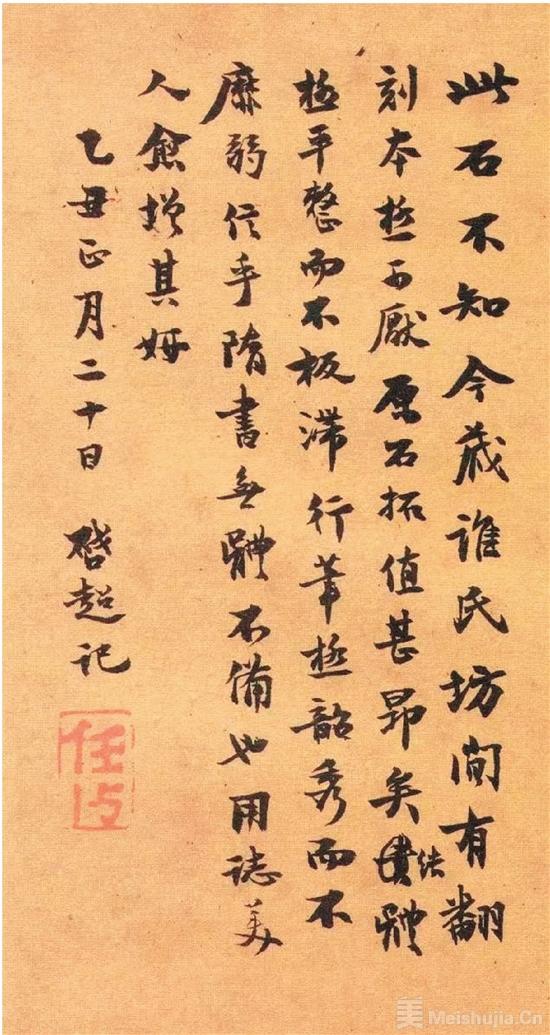 此石不知今藏誰氏坊間有翻
刻本極可厭原石拓值甚昂矣結體
極平整而不板滯行筆極韶秀而不
靡弱信乎隋書無體不備也用誌美
人愈增其妍
乙丑正月二十日 啓超記
任公
美 Meishujia.Cn